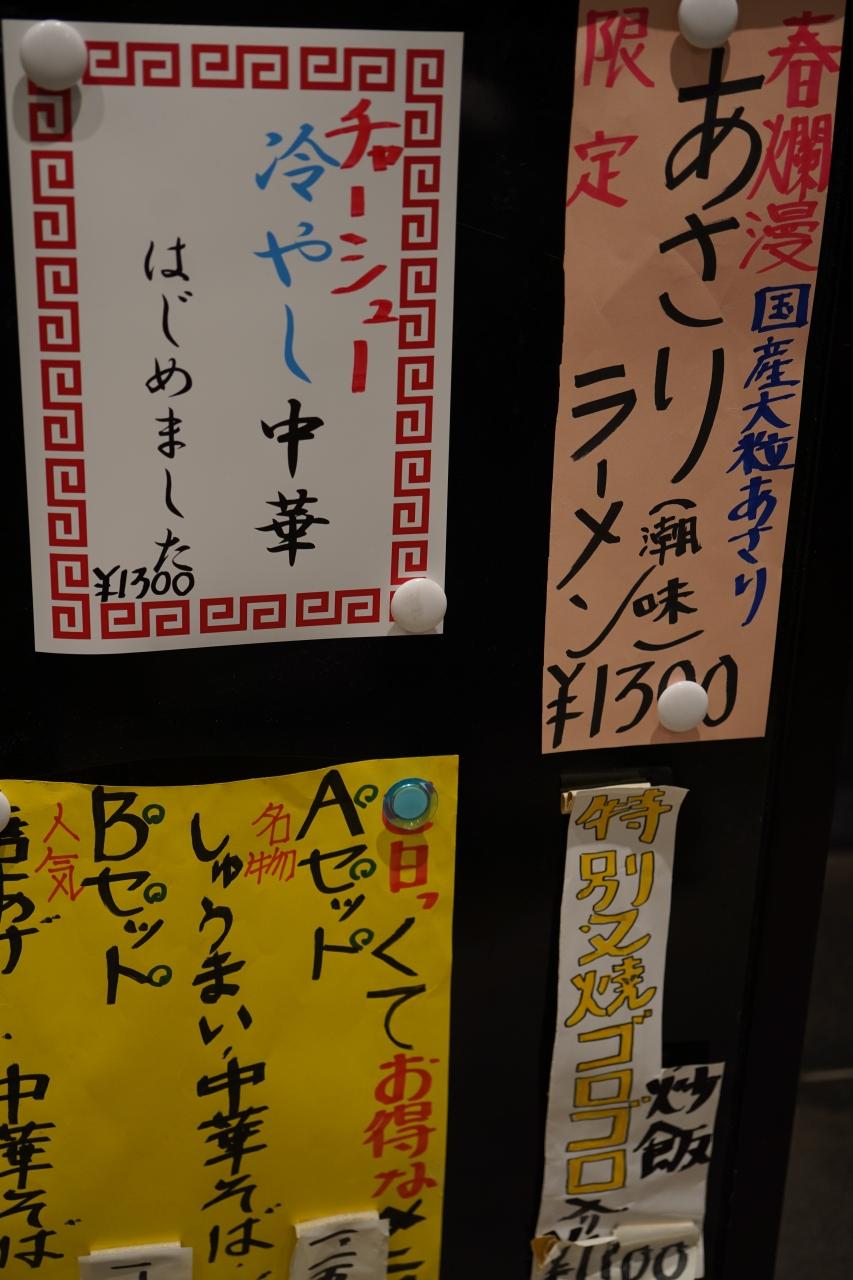 チャーシュー
冷やし中華
はじめました
¥1300
春爛漫
国産大粒あさり
あさり
(潮味)
ラーメン
限定
¥1300
くてお得なメニ
Aセット
名物
しゅうまい・中華そば
Bセット
人気
あげ・中華そば
特別叉焼ゴロゴロ入り
炒飯
¥1100